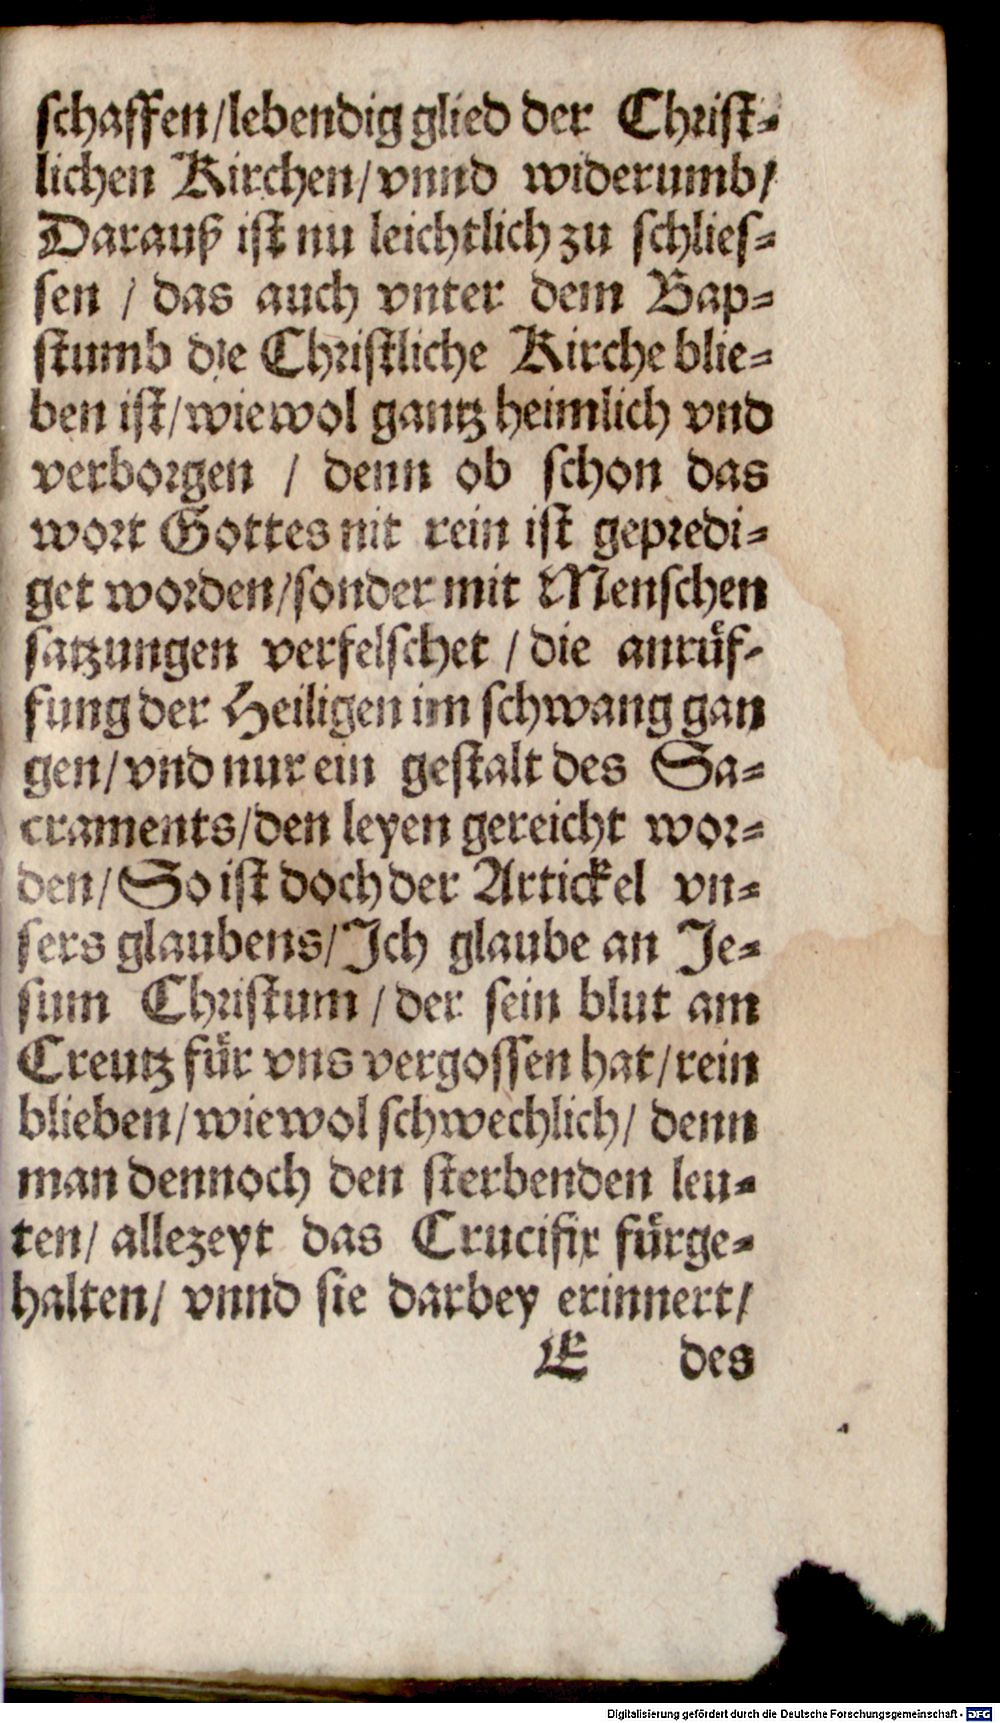 schaffen/lebendig glied der Christ-
lichen Kirchen/vnnd widerumb/
Darauß ist nu leichtlich zu schlies-
sen / das auch vnter dem Bap-
stumb die Christliche Kirche blie-
ben ist/wiewol gantz heimlich vnd
verborgen / denn ob schon das
wort Gottes nit rein ist gepredi-
get worden/sonder mit Menschen
satzungen verfelschet / die anrüf-
fung der Heiligen im schwang gan
gen/vnd nur ein gestalt des Sa-
craments/den leyen gereicht wor-
den/So ist doch der Artickel vn-
sers glaubens/Ich glaube an Je-
sum Christum / der sein blut am
Creutz für vns vergossen hat/rein
blieben/wiewol schwechlich/ denn
man dennoch den sterbenden leu-
ten/ allezeyt das Crucifix fürge-
halten/ vnnd sie darbey erinnert/
E des
Digitalisierung gefördert durch die Deutsche Forschungsgemeinschaft - DFG